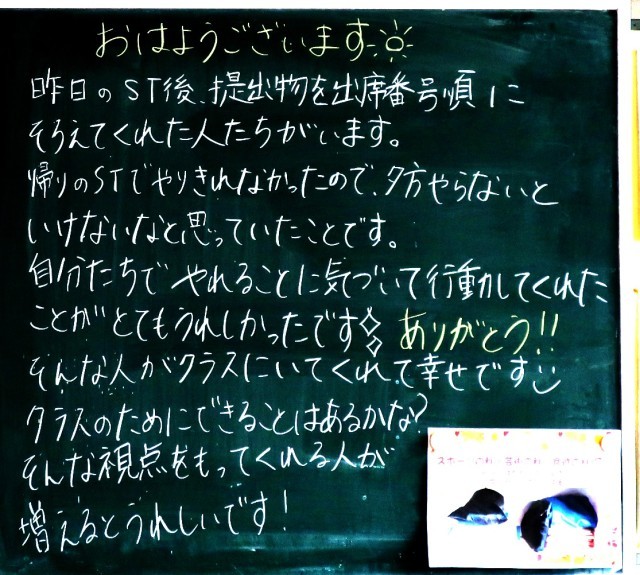 おはようございます
昨日のST後、提出物を出席番号順に
そろえてくれた人たちがいます。
帰りのSTでやりきれなかったので、夕方やらないと
いけないなと思っていたことです。
自分たちでやれることに気づいて行動してくれた
ことがとてもうれしかったです ありがとう!!
そんな人がクラスにいてくれて幸せです
クラスのためにできることはあるかな?
そんな視点をもってくれる人が
増えるとうれしいです!